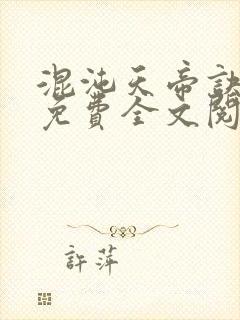 混沌天帝訣
免費全文閱
許萍